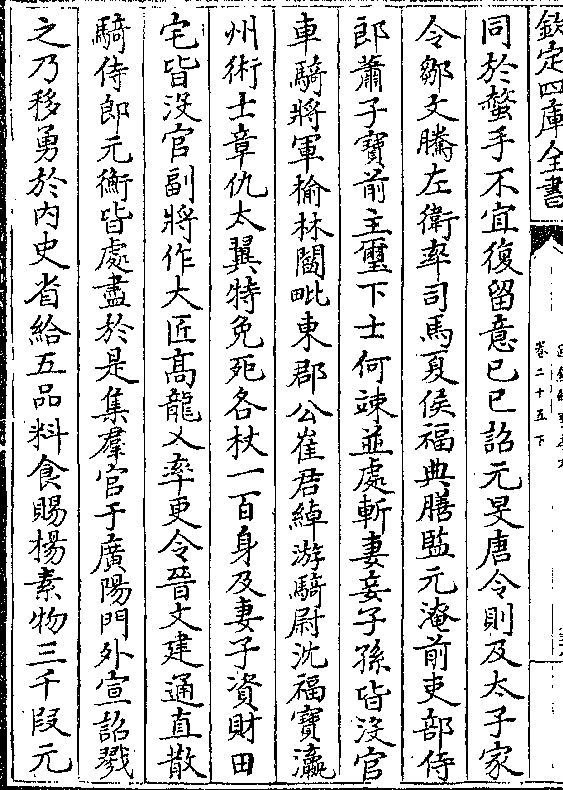 欽定四庫全書
卷二十五下
同於螫手不宜復留意己巳詔元旻唐令則及太子家
令鄒文騰左衛率司馬夏侯福典膳監元淹前吏部侍
郎蕭子寶前主璽下士何竦並處斬妻妾子孫皆沒官
車騎將軍榆林閻毗東郡公崔君綽游騎尉沈福寶瀛
州術士章仇太翼特免死各杖一百身及妻子資財田
宅皆沒官副將作大匠高龍乂率更令晉文建通直散
騎侍郎元衡皆處盡於是集羣官于廣陽門外宣詔戮
之乃移勇於内史省給五品料食賜楊素物三千段元